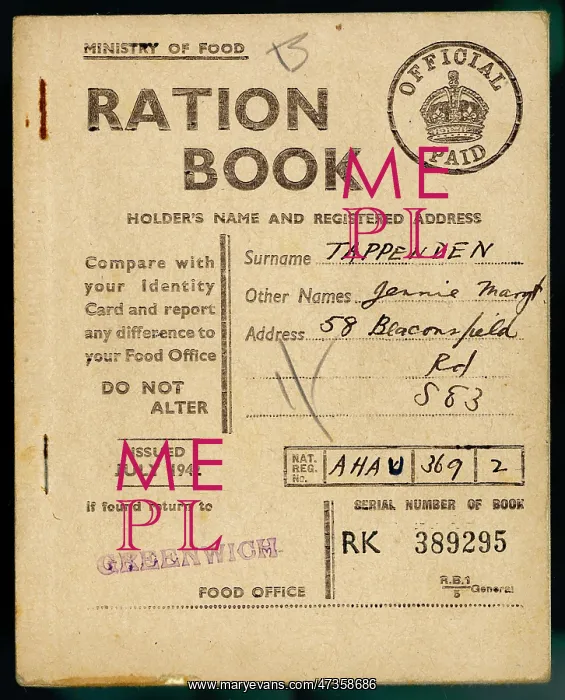 MINISTRY OF FOOD
B
OFFICIAL
PAID
RATION
BOOK
HOLDER'S NAME AND REGISTERED ADDRESS
Compare with
your Identity
Card and report
any difference to
your Food Office
DO NOT
ALTER
Surname TAPPENDEN
Other Names Jennie Margt
Address 58 Beaconsfield
Rd
SE3
ME
PL
ISSUED
JULY
NAT.
REG.
No.
AHAU 369 2
ME
PL
If found return to
GREENWICH
FOOD OFFICE
SERIAL NUMBER OF BOOK
RK 389295
R.B.1
5 General
www.maryevans.com/47358686